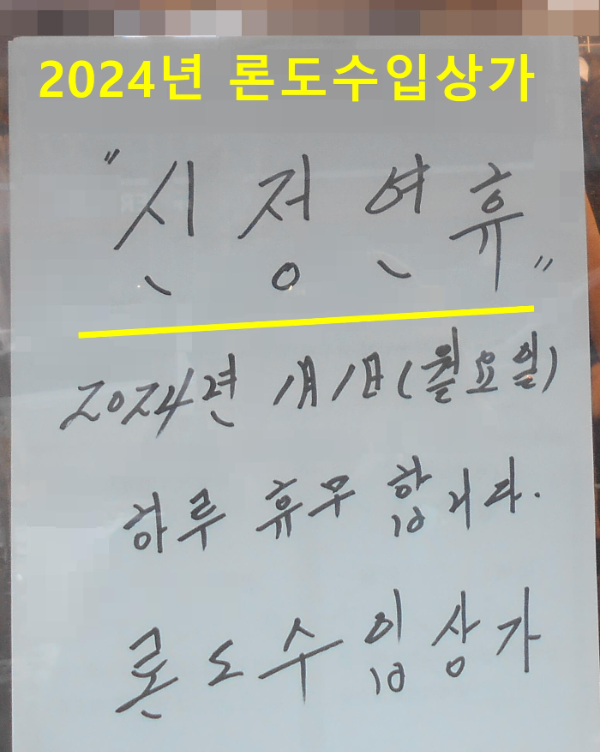 2024년 론도수입상가
"신정연휴"
2024년 1月1日(월요일)
하루 휴무 합니다.
론도수입상가